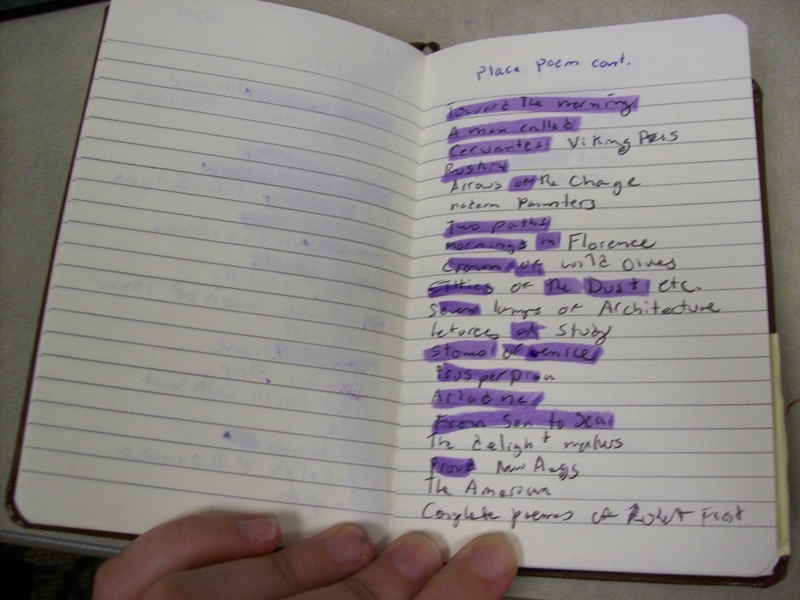 Place Poem cont.
Toward The morning
A man called
Cervantes Viking
Ruskin
Arrows of the Change
modern Painters
Two paths
mornings in Florence
Crown of wild Olives
Ethics of the Dust etc.
Seven lamps of Architecture
letures of Study
Stones of venice
Ariadne
From Sea to Sea
The delight makers
Proud New
The American
Complete poems of Robert Frost